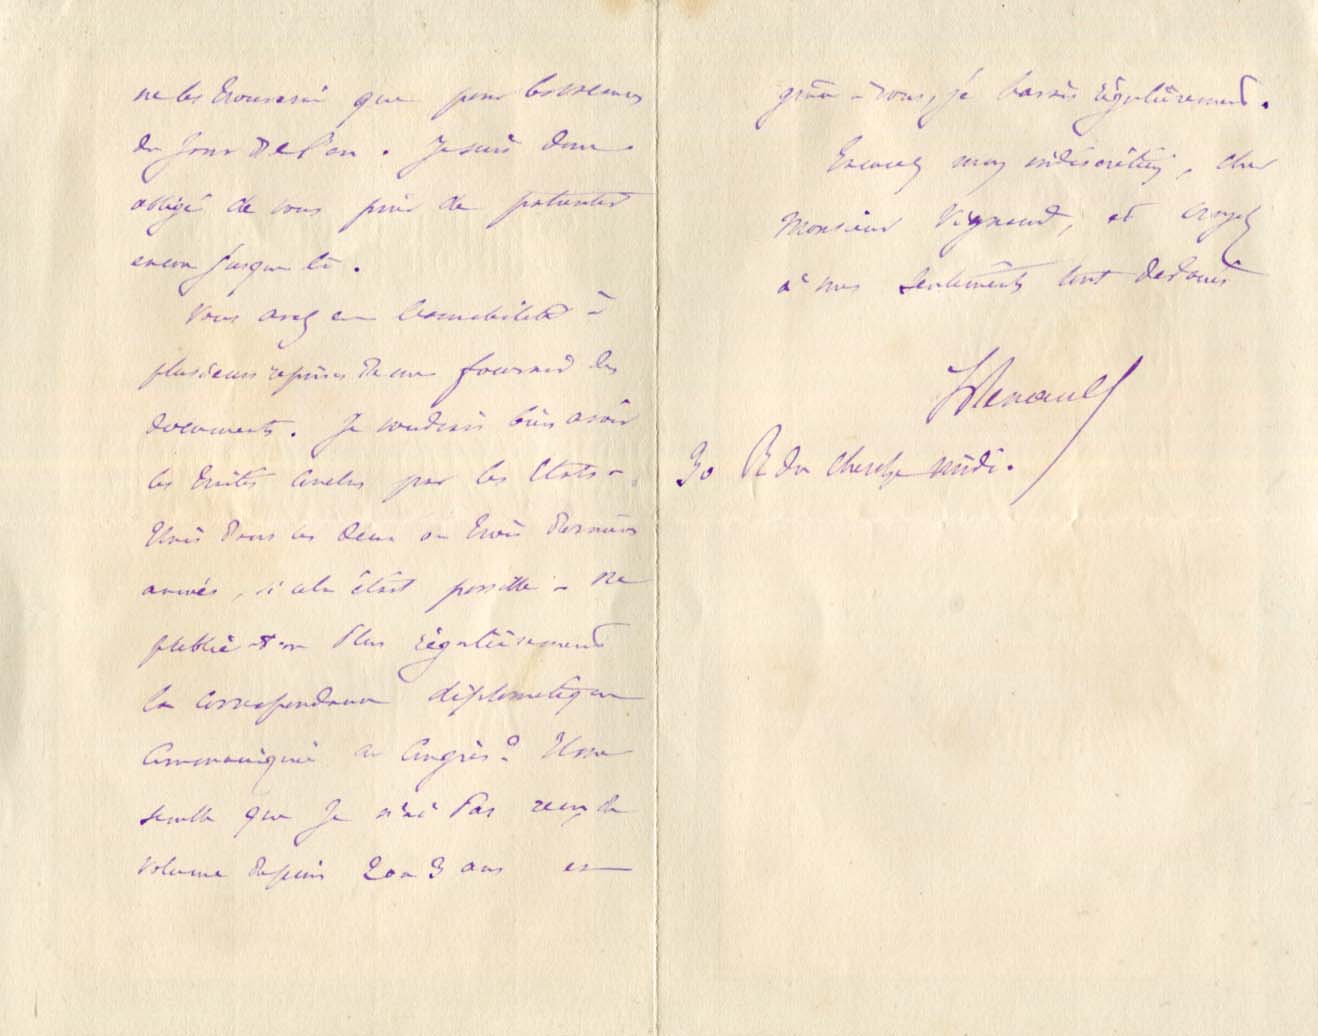 ne les trouverai que pour les vacances
du Jour de l'an. Je suis donc
obligé de vous prier de patienter
encore jusque là.
Vous avez eu l'amabilité à
plusieurs reprises de me fournir des
documents. Je voudrais bien avoir
les traités conclus par les Etats-
Unis dans les deux ou trois dernières
années, si cela était possible. Ne
publie-t-on plus régulièrement
la correspondance diplomatique
communiquée au Congrès? Il me
semble que je n'ai pas reçu de
volume depuis 2 ou 3 ans et
grâce à vous, je l'avais régulièrement.
Excusez mon indiscrétion, cher
Monsieur Vignaud, et croyez
à mes sentiments tout dévoués
LRenault
30 R du Cherche midi.